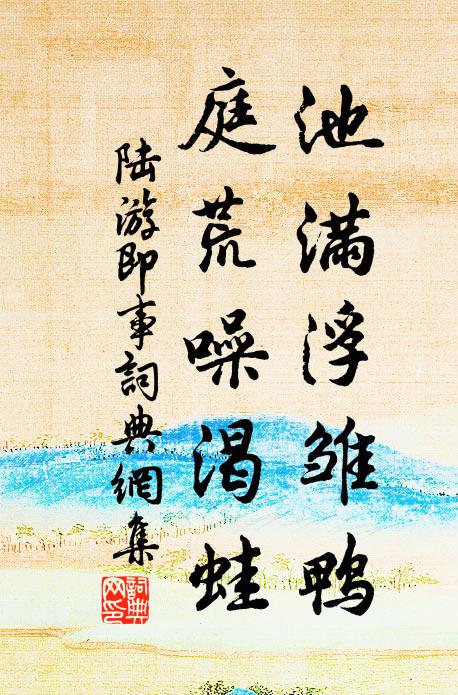 池满浮雏鸭
庭荒噪渴蛙
陆游即事詞典網集
詞典